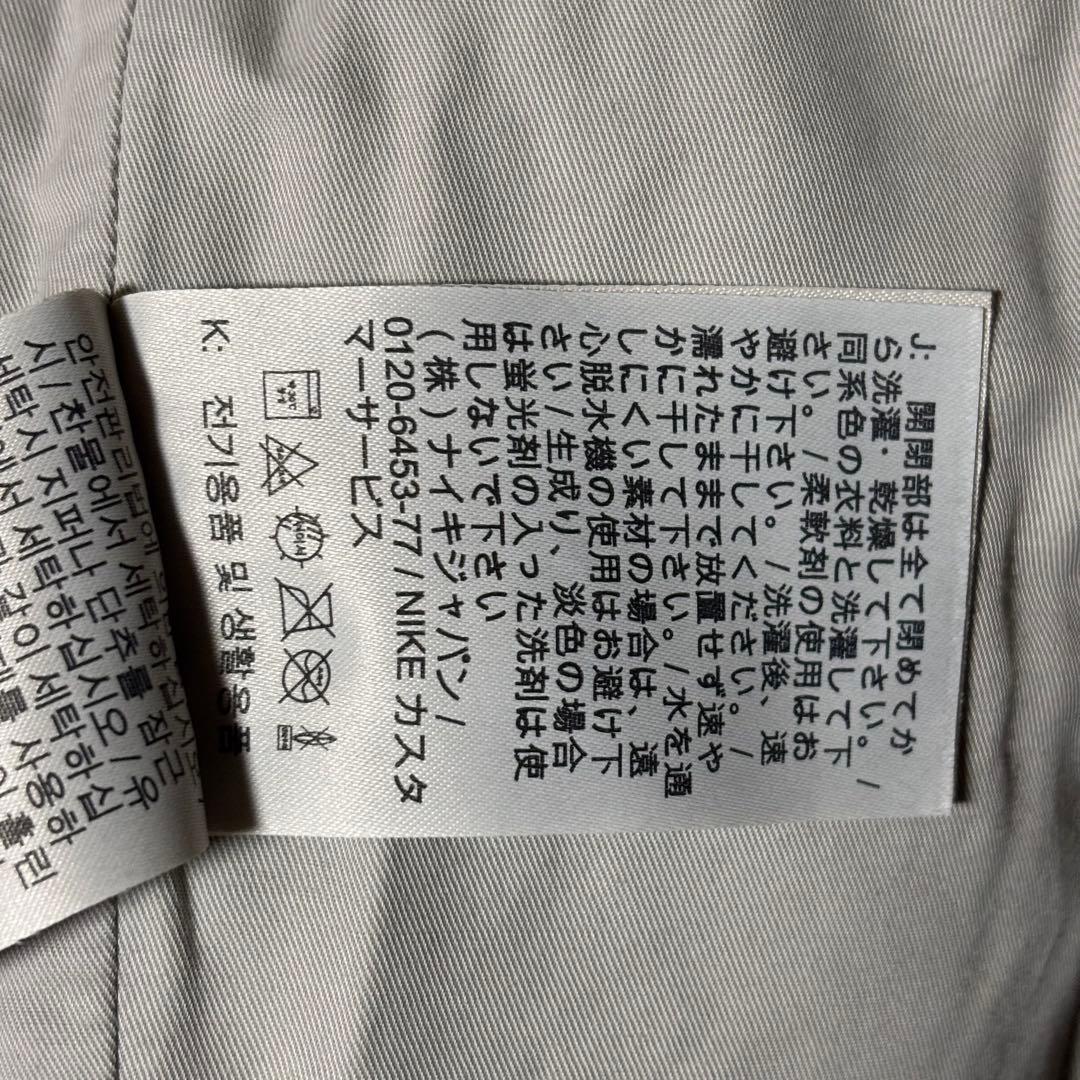 J: 開閉部は全て閉めてか
ら洗濯・乾燥して下さい。/
同系色の衣料と洗濯して下
さい。/柔軟剤の使用はお
避け下さい。/洗濯後、速
やかに干してください。/
濡れたままで放置せず速や
かに干して下さい。/水を通
しにくい素材の場合は、遠
心脱水機の使用はお避け下
さい/生成り、淡色の場合
は蛍光剤の入った洗剤は使
用しないで下さい
(株)ナイキジャパン/
0120-6453-77/NIKE カスタ
マーサービス
K: 전기용품 및 생활용품
안전관리법에
시/찬물에서 세탁하십시오/유
세탁시 지퍼나 단추를 잠근